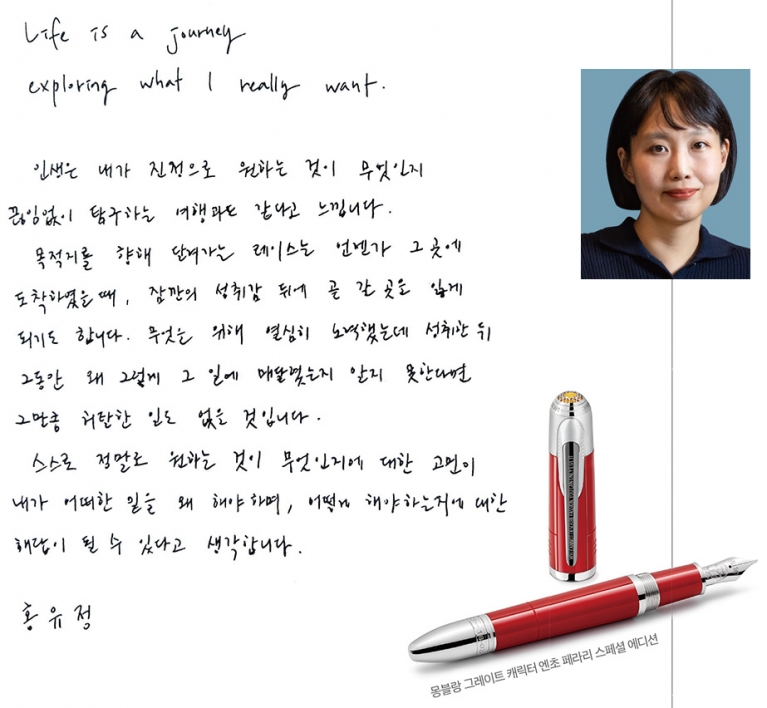 Life is a journey
exploring what I really want.
인생은 내가 진정으로 원하는 것이 무엇인지
끊임없이 탐구하는 여행과도 같다고 느낍니다.
목적지를 향해 달려가는 레이스는 언젠가 그 곳에
도착하였을 때, 잠깐의 성취감 뒤에 곧 갈 곳을 잃게
되기도 합니다. 무엇을 위해 열심히 노력했는데 성취한 뒤
그동안 왜 그렇게 그 일에 매달렸는지 알지 못한다면
그만큼 허탈한 일도 없을 것입니다.
스스로 정말로 원하는 것이 무엇인지에 대한 고민이
내가 어떠한 일을 왜 해야하며, 어떻게 해야하는지에 대한
해답이 될 수 있다고 생각합니다.
홍유정
몽블랑 그레이트 캐릭터 엔초 페라리 스페셜 에디션